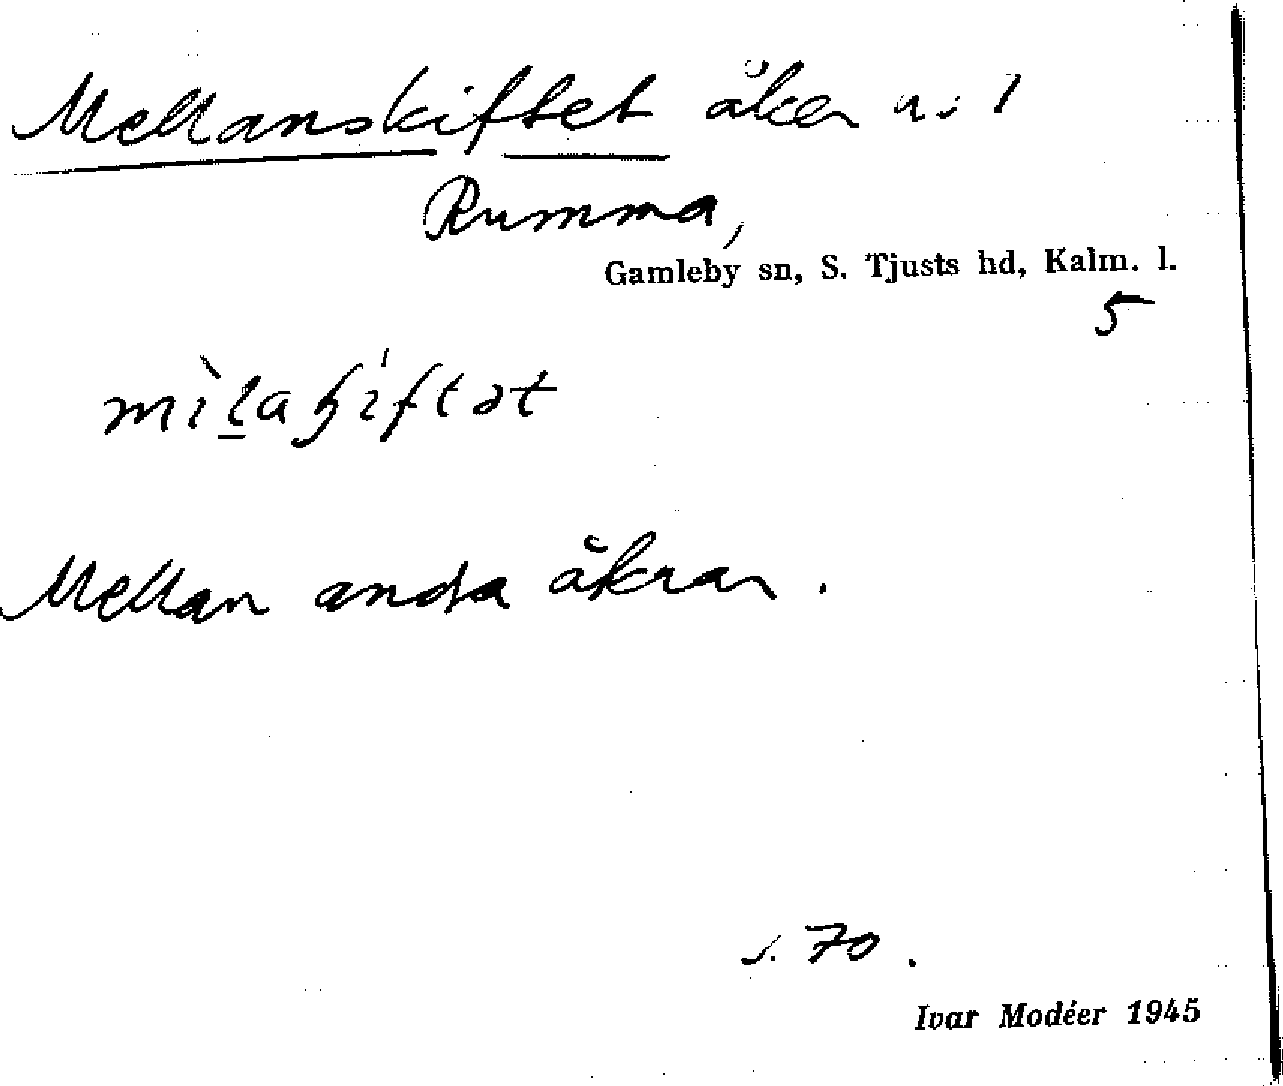 Mellanskiftet åker u. 1
Rumma,
Gamleby sn, S. Tjusts hd, Kalm. l.
5
Mellan andra åkrar.
s. 70.
Ivar Modéer 1945